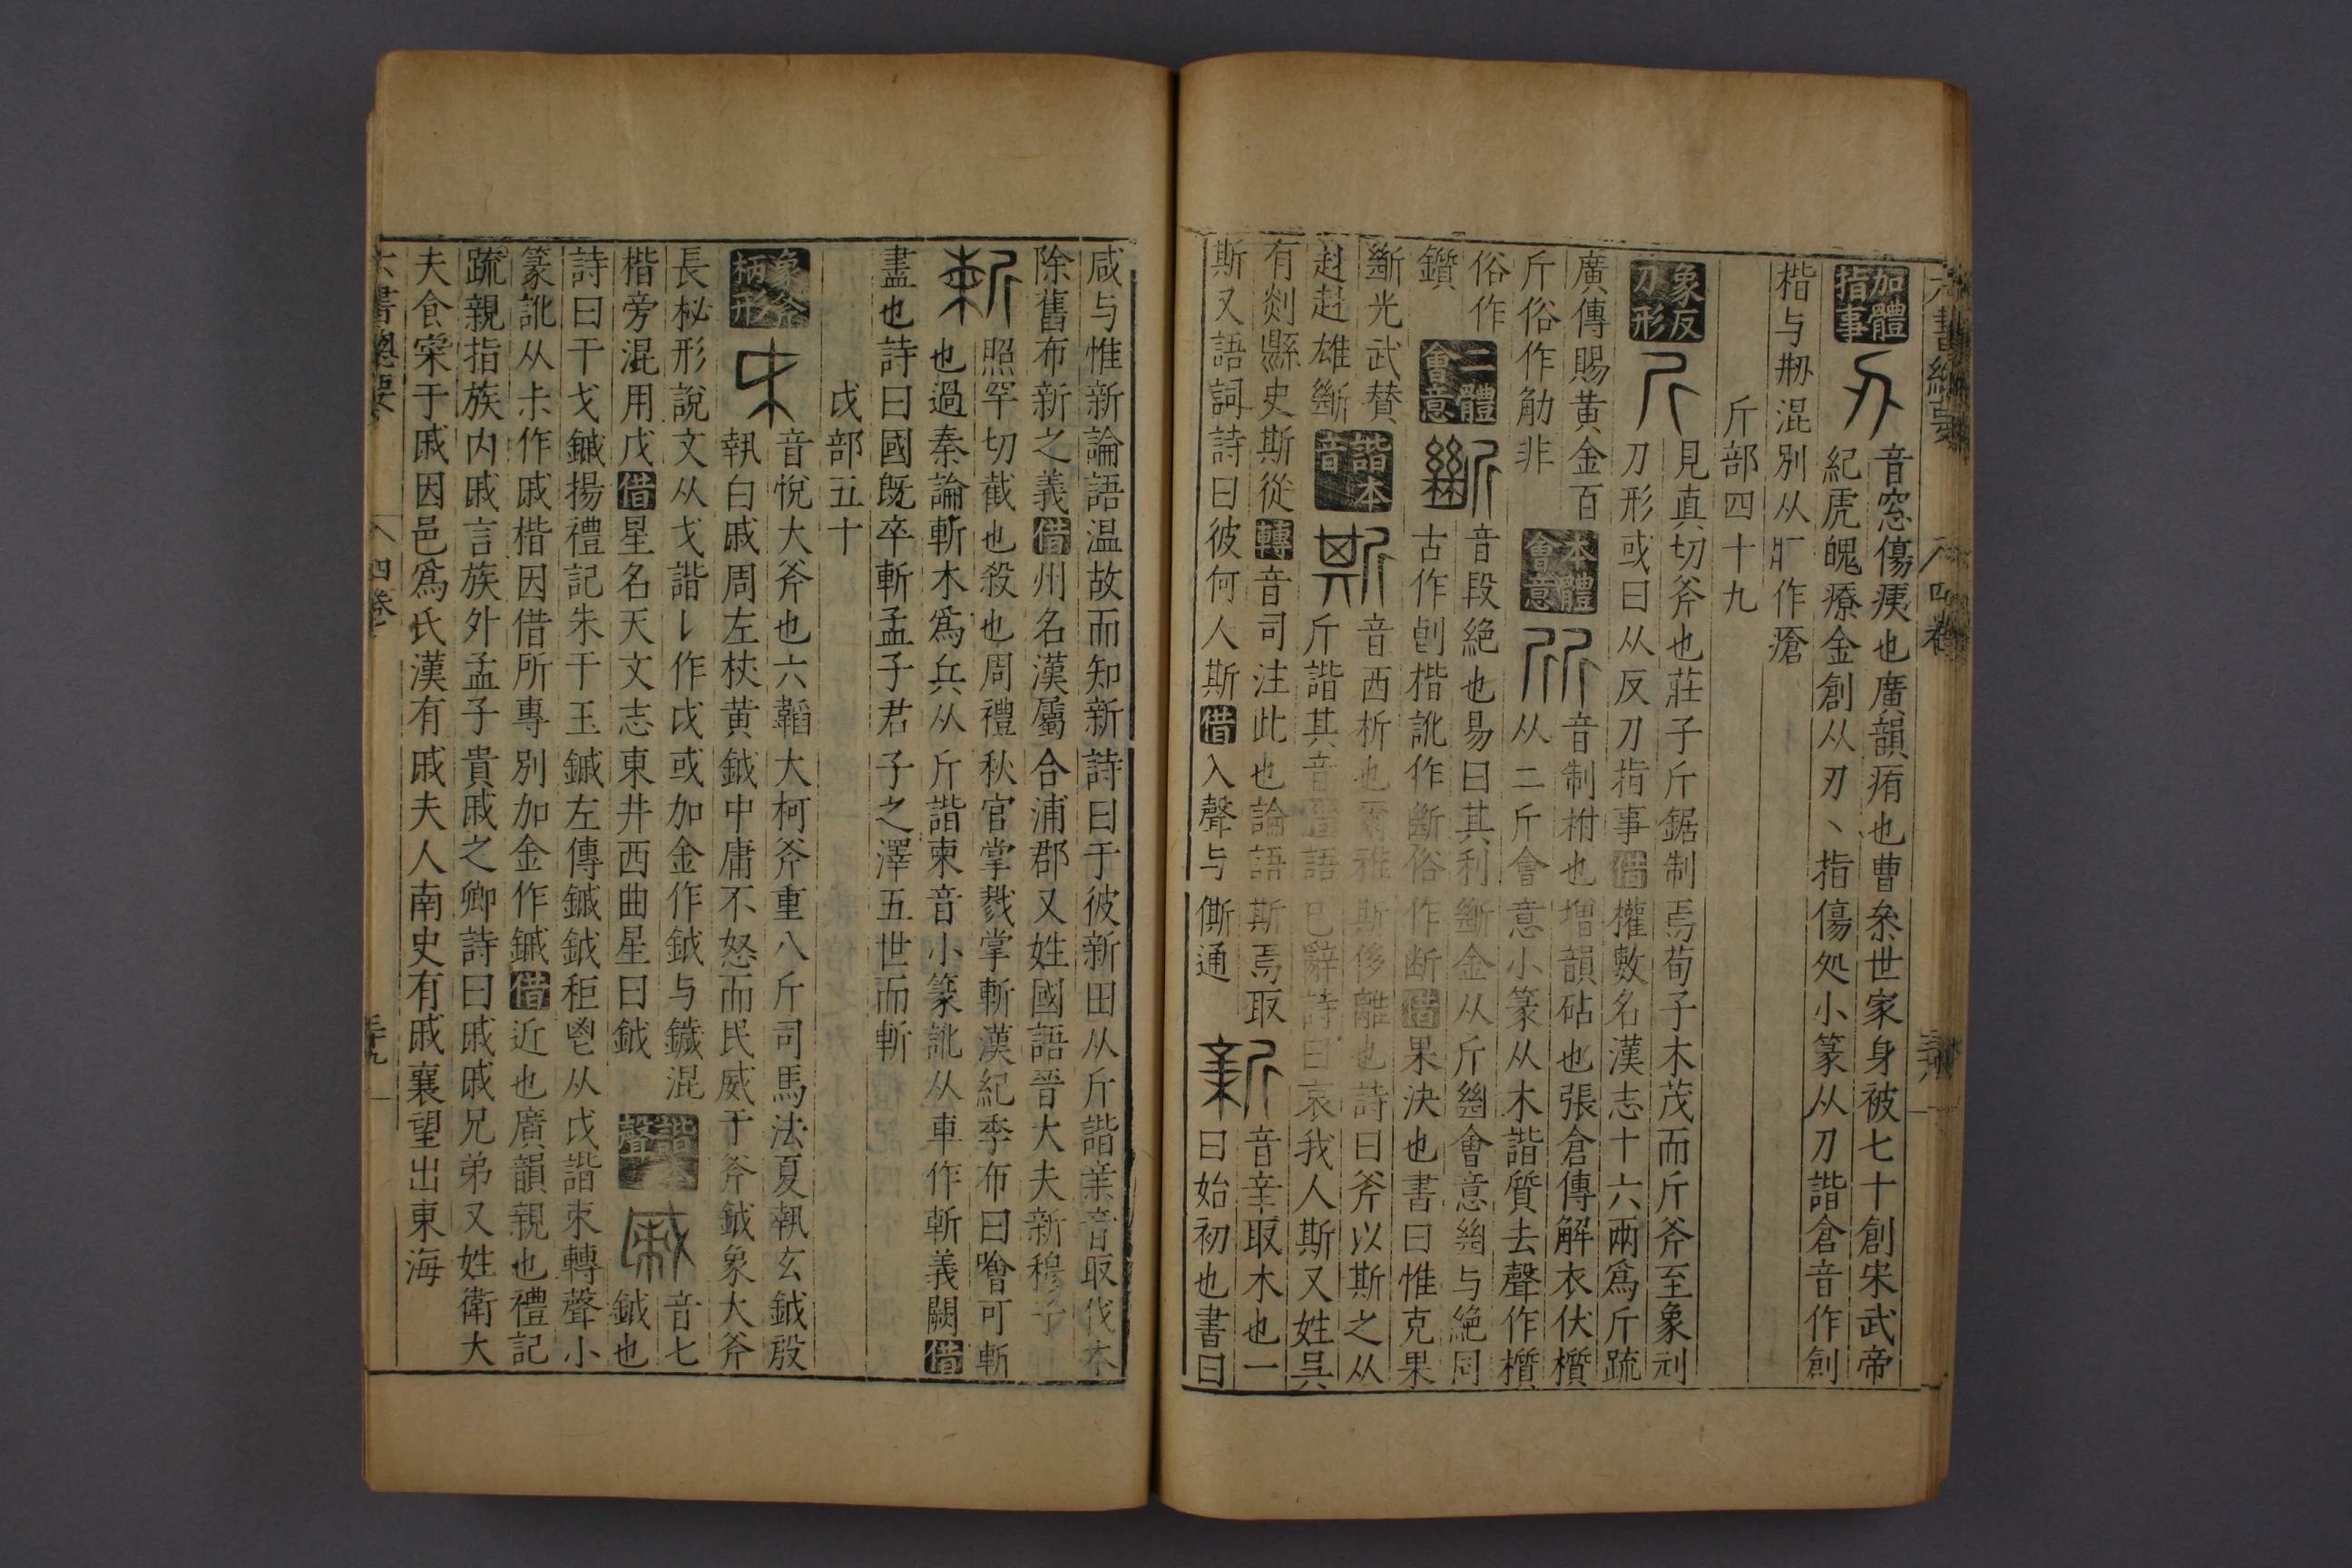 六書緫要 四卷 三八
加體指事
音窓傷痍也廣韻痏也曹叅世家身被七十創宋武帝
紀虎魄療金創从刃丶指傷処小篆从刀諧倉音作創
楷与刱混別从疒作瘡
斤部四十九
象反刀形
見真切斧也莊子斤鋸制焉荀子木茂而斤斧至象刓
刀形或曰从反刀指事借權數名漢志十六兩爲斤疏
廣傳賜黃金百斤俗作觔非
本體會意
音制柎也增韻砧也張倉傳解衣伏櫍
从二斤會意小篆从木諧質去聲作櫍
俗作鑕
二體會意
音段絕也易曰其利斷金从斤㡭會意㡭与絕同
古作㫁楷訛作斷俗作断借果決也書曰惟克果
斷光武賛赳赳雄斷
諧本音
音西析也爾雅斯侈離也詩曰斧以斯之从
斤諧其音語已辭詩曰哀我人斯又姓吳
有剡縣史斯從轉音司注此也論語斯焉取
斯又語詞詩曰彼何人斯借入聲与𠊓通
音辛取木也一
曰始初也書曰
咸与惟新論語温故而知新詩曰于彼新田从斤諧亲音取伐木
除舊布新之義借州名漢屬合浦郡又姓國語晉大夫新穆子
照罕切截也殺也周禮秋官掌戮掌斬漢紀季布曰噲可斬
也過秦論斬木爲兵从斤諧柬音小篆訛从車作斬義闕借
盡也詩曰國旣卒斬孟子君子之澤五世而斬
戉部五十
象斧柄形
音悅大斧也六韜大柯斧重八斤司馬法夏執玄鉞殷
執白戚周左杖黃鉞中庸不怒而民威于斧鉞象大斧
長柲形說文从戈諧𠄌作戉或加金作鉞与鐬混
楷旁混用戊借星名天文志東井西曲星曰鉞
諧聲
音七鉞也
詩曰干戈鏚揚禮記朱干玉鏚左傳鏚鉞秬鬯从戉諧朿轉聲小
篆訛从尗作戚楷因借所專別加金作鏚借近也廣韻親也禮記
䟽親指族内戚言族外孟子貴戚之卿詩曰戚戚兄弟又姓衛大
夫食寀于戚因邑爲氏漢有戚夫人南史有戚襄望出東海
六書緫要 四卷 三九